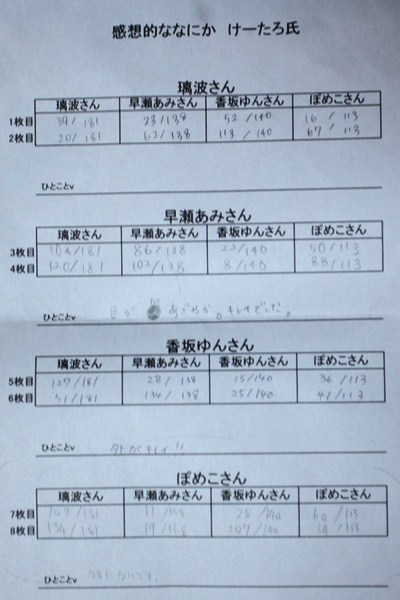 感想的ななにか けーたろ氏
璃波さん
璃波さん 早瀬あみさん 香坂ゆんさん ぽめこさん
1枚目 39/181 23/138 52/140 16/113
2枚目 20/181 62/138 113/140 67/113
ひとことv
早瀬あみさん
璃波さん 早瀬あみさん 香坂ゆんさん ぽめこさん
3枚目 104/181 86/138 22/140 50/113
4枚目 120/181 102/138 8/140 88/113
ひとことv キレイでした。
香坂ゆんさん
璃波さん 早瀬あみさん 香坂ゆんさん ぽめこさん
5枚目 127/181 28/138 15/140 36/113
6枚目 51/181 134/138 25/140 41/113
ひとことv
ぽめこさん
璃波さん 早瀬あみさん 香坂ゆんさん ぽめこさん
7枚目 11/138 28/140 60/113
8枚目 134/181 19/138 107/140
ひとことv 特にないです。